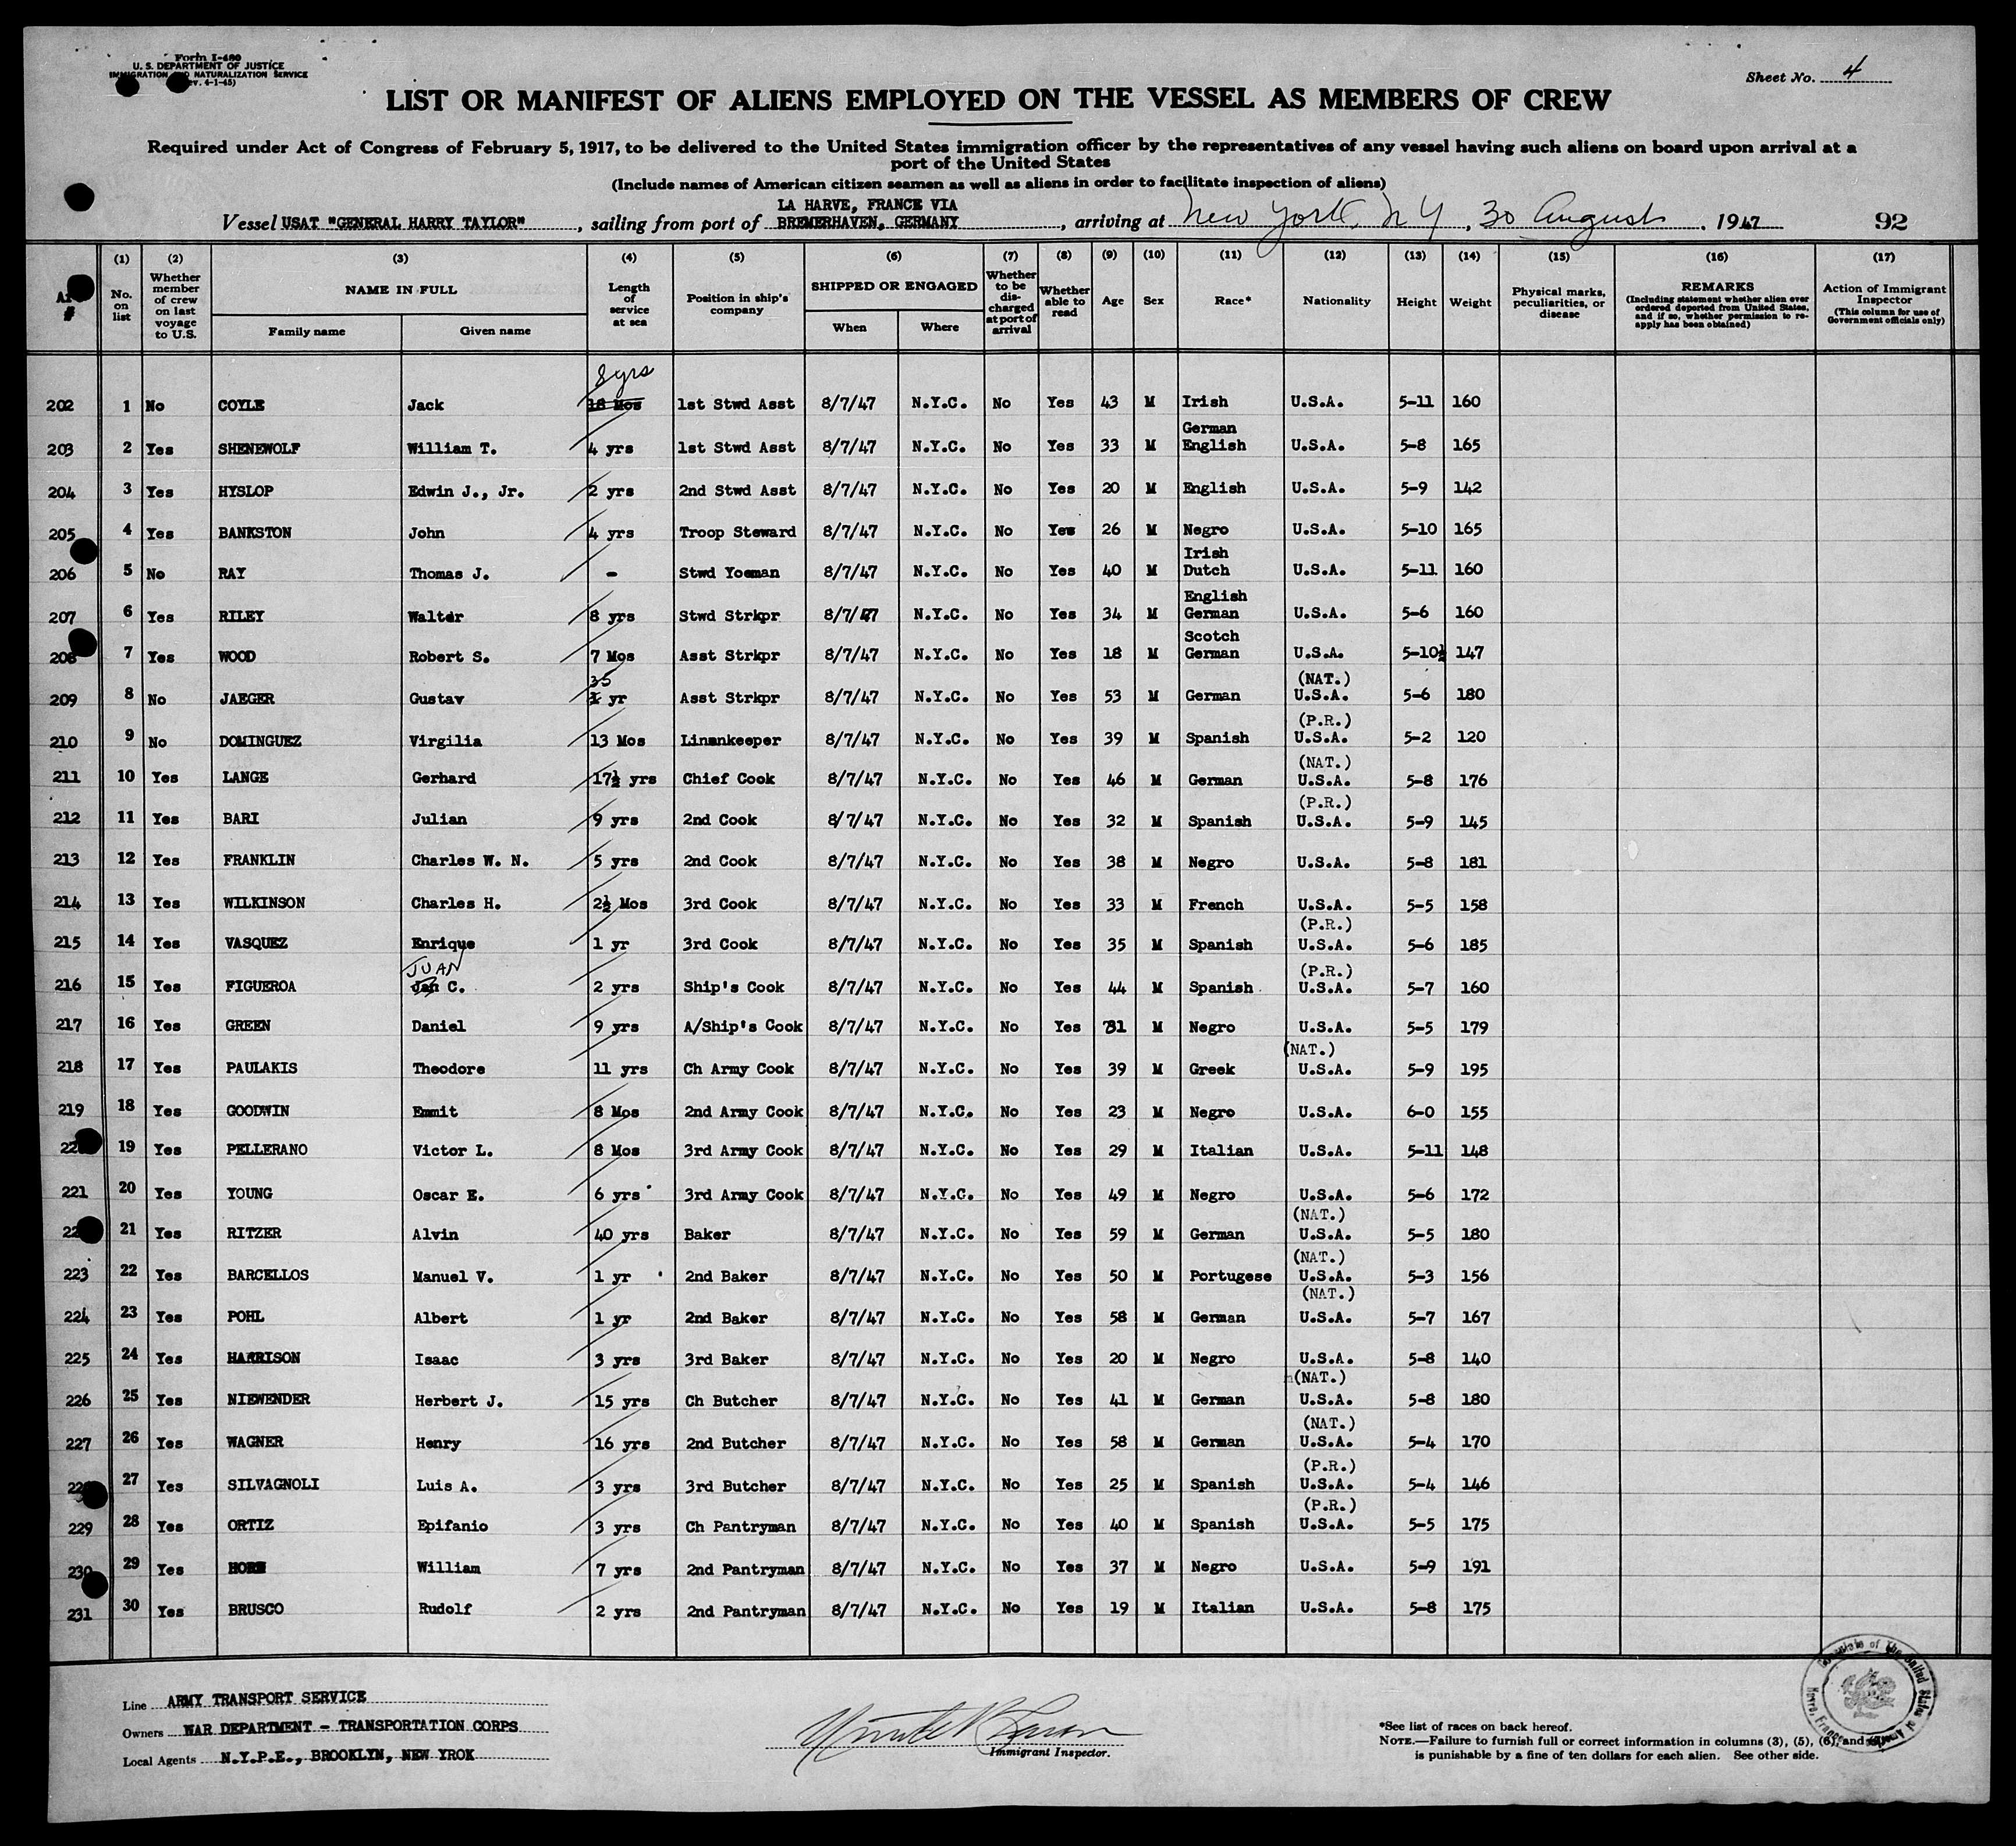 Form I-480
U. S. DEPARTMENT OF JUSTICE
IMMIGRATION AND NATURALIZATION SERVICE
(Rev. 4-1-45)
Sheet No. 4
LIST OR MANIFEST OF ALIENS EMPLOYED ON THE VESSEL AS MEMBERS OF CREW
Required under Act of Congress of February 5, 1917, to be delivered to the United States immigration officer by the representatives of any vessel having such aliens on board upon arrival at a
port of the United States
(Include names of American citizen seamen as well as aliens in order to facilitate inspection of aliens)
LA HARVE, FRANCE VIA
Vessel USAT "GENERAL HARRY TAYLOR", sailing from port of BREMERHAVEN, GERMANY, arriving at New York, NY, 30 August, 1947 92
# (1) No. on list (2) Whether member of crew on last voyage to U.S. (3) NAME IN FULL Family name Given name (4) Length of service at sea (5) Position in ship's company (6) SHIPPED OR ENGAGED When Where (7) Whether to be discharged at port of arrival (8) Whether able to read (9) Age (10) Sex (11) Race* (12) Nationality (13) Height (14) Weight (15) Physical marks, peculiarities, or disease (16) REMARKS (Including statement whether alien ever ordered deported from United States, and if so, whether permission to reapply has been obtained) (17) Action of Immigrant Inspector (This column for use of Government officials only)
8 yrs
202 1 No COYLE Jack 18 Mos 1st Stwd Asst 8/7/47 N.Y.C. No Yes 43 M Irish U.S.A. 5-11 160
German
203 2 Yes SHENEWOLF William T. 4 yrs 1st Stwd Asst 8/7/47 N.Y.C. No Yes 33 M English U.S.A. 5-8 165
204 3 Yes HYSLOP Edwin J., Jr. 2 yrs 2nd Stwd Asst 8/7/47 N.Y.C. No Yes 20 M English U.S.A. 5-9 142
205 4 Yes BANKSTON John 4 yrs Troop Steward 8/7/47 N.Y.C. No Yes 26 M Negro U.S.A. 5-10 165
Irish
206 5 No RAY Thomas J. - Stwd Yoeman 8/7/47 N.Y.C. No Yes 40 M Dutch U.S.A. 5-11 160
English
207 6 Yes RILEY Walter 8 yrs Stwd Strkpr 8/7/47 N.Y.C. No Yes 34 M German U.S.A. 5-6 160
Scotch
208 7 Yes WOOD Robert S. 7 Mos Asst Strkpr 8/7/47 N.Y.C. No Yes 18 M German U.S.A. 5-10½ 147
35 (NAT.)
209 8 No JAEGER Gustav yr Asst Strkpr 8/7/47 N.Y.C. No Yes 53 M German U.S.A. 5-6 180
(P.R.)
210 9 No DOMINGUEZ Virgilia 13 Mos Linenkeeper 8/7/47 N.Y.C. No Yes 39 M Spanish U.S.A. 5-2 120
(NAT.)
211 10 Yes LANGE Gerhard 17½ yrs Chief Cook 8/7/47 N.Y.C. No Yes 46 M German U.S.A. 5-8 176
(P.R.)
212 11 Yes BARI Julian 9 yrs 2nd Cook 8/7/47 N.Y.C. No Yes 32 M Spanish U.S.A. 5-9 145
213 12 Yes FRANKLIN Charles W. N. 5 yrs 2nd Cook 8/7/47 N.Y.C. No Yes 38 M Negro U.S.A. 5-8 181
214 13 Yes WILKINSON Charles H. 2½ Mos 3rd Cook 8/7/47 N.Y.C. No Yes 33 M French U.S.A. 5-5 158
(P.R.)
215 14 Yes VASQUEZ Enrique 1 yr 3rd Cook 8/7/47 N.Y.C. No Yes 35 M Spanish U.S.A. 5-6 185
JUAN (P.R.)
216 15 Yes FIGUEROA Jan C. 2 yrs Ship's Cook 8/7/47 N.Y.C. No Yes 44 M Spanish U.S.A. 5-7 160
217 16 Yes GREEN Daniel 9 yrs A/Ship's Cook 8/7/47 N.Y.C. No Yes 31 M Negro U.S.A. 5-5 179
(NAT.)
218 17 Yes PAULAKIS Theodore 11 yrs Ch Army Cook 8/7/47 N.Y.C. No Yes 39 M Greek U.S.A. 5-9 195
219 18 Yes GOODWIN Emmit 8 Mos 2nd Army Cook 8/7/47 N.Y.C. No Yes 23 M Negro U.S.A. 6-0 155
19 Yes PELLERANO Victor L. 8 Mos 3rd Army Cook 8/7/47 N.Y.C. No Yes 29 M Italian U.S.A. 5-11 148
221 20 Yes YOUNG Oscar E. 6 yrs 3rd Army Cook 8/7/47 N.Y.C. No Yes 49 M Negro U.S.A. 5-6 172
(NAT.)
21 Yes RITZER Alvin 40 yrs Baker 8/7/47 N.Y.C. No Yes 59 M German U.S.A. 5-5 180
(NAT.)
223 22 Yes BARCELLOS Manuel V. 1 yr 2nd Baker 8/7/47 N.Y.C. No Yes 50 M Portugese U.S.A. 5-3 156
(NAT.)
224 23 Yes POHL Albert 1 yr 2nd Baker 8/7/47 N.Y.C. No Yes 58 M German U.S.A. 5-7 167
225 24 Yes HARRISON Isaac 3 yrs 3rd Baker 8/7/47 N.Y.C. No Yes 20 M Negro U.S.A. 5-8 140
(NAT.)
226 25 Yes NIEWENDER Herbert J. 15 yrs Ch Butcher 8/7/47 N.Y.C. No Yes 41 M German U.S.A. 5-8 180
(NAT.)
227 26 Yes WAGNER Henry 16 yrs 2nd Butcher 8/7/47 N.Y.C. No Yes 58 M German U.S.A. 5-4 170
(P.R.)
27 Yes SILVAGNOLI Luis A. 3 yrs 3rd Butcher 8/7/47 N.Y.C. No Yes 25 M Spanish U.S.A. 5-4 146
(P.R.)
229 28 Yes ORTIZ Epifanio 3 yrs Ch Pantryman 8/7/47 N.Y.C. No Yes 40 M Spanish U.S.A. 5-5 175
230 29 Yes HORN William 7 yrs 2nd Pantryman 8/7/47 N.Y.C. No Yes 37 M Negro U.S.A. 5-9 191
231 30 Yes BRUSCO Rudolf 2 yrs 2nd Pantryman 8/7/47 N.Y.C. No Yes 19 M Italian U.S.A. 5-8 175
Line ARMY TRANSPORT SERVICE
Owners WAR DEPARTMENT - TRANSPORTATION CORPS
Local Agents N.Y.P.E., BROOKLYN, NEW YROK
Immigrant Inspector.
*See list of races on back hereof.
NOTE.—Failure to furnish full or correct information in columns (3), (5), (6), and
is punishable by a fine of ten dollars for each alien. See other side.
of The United States of America Havre, France